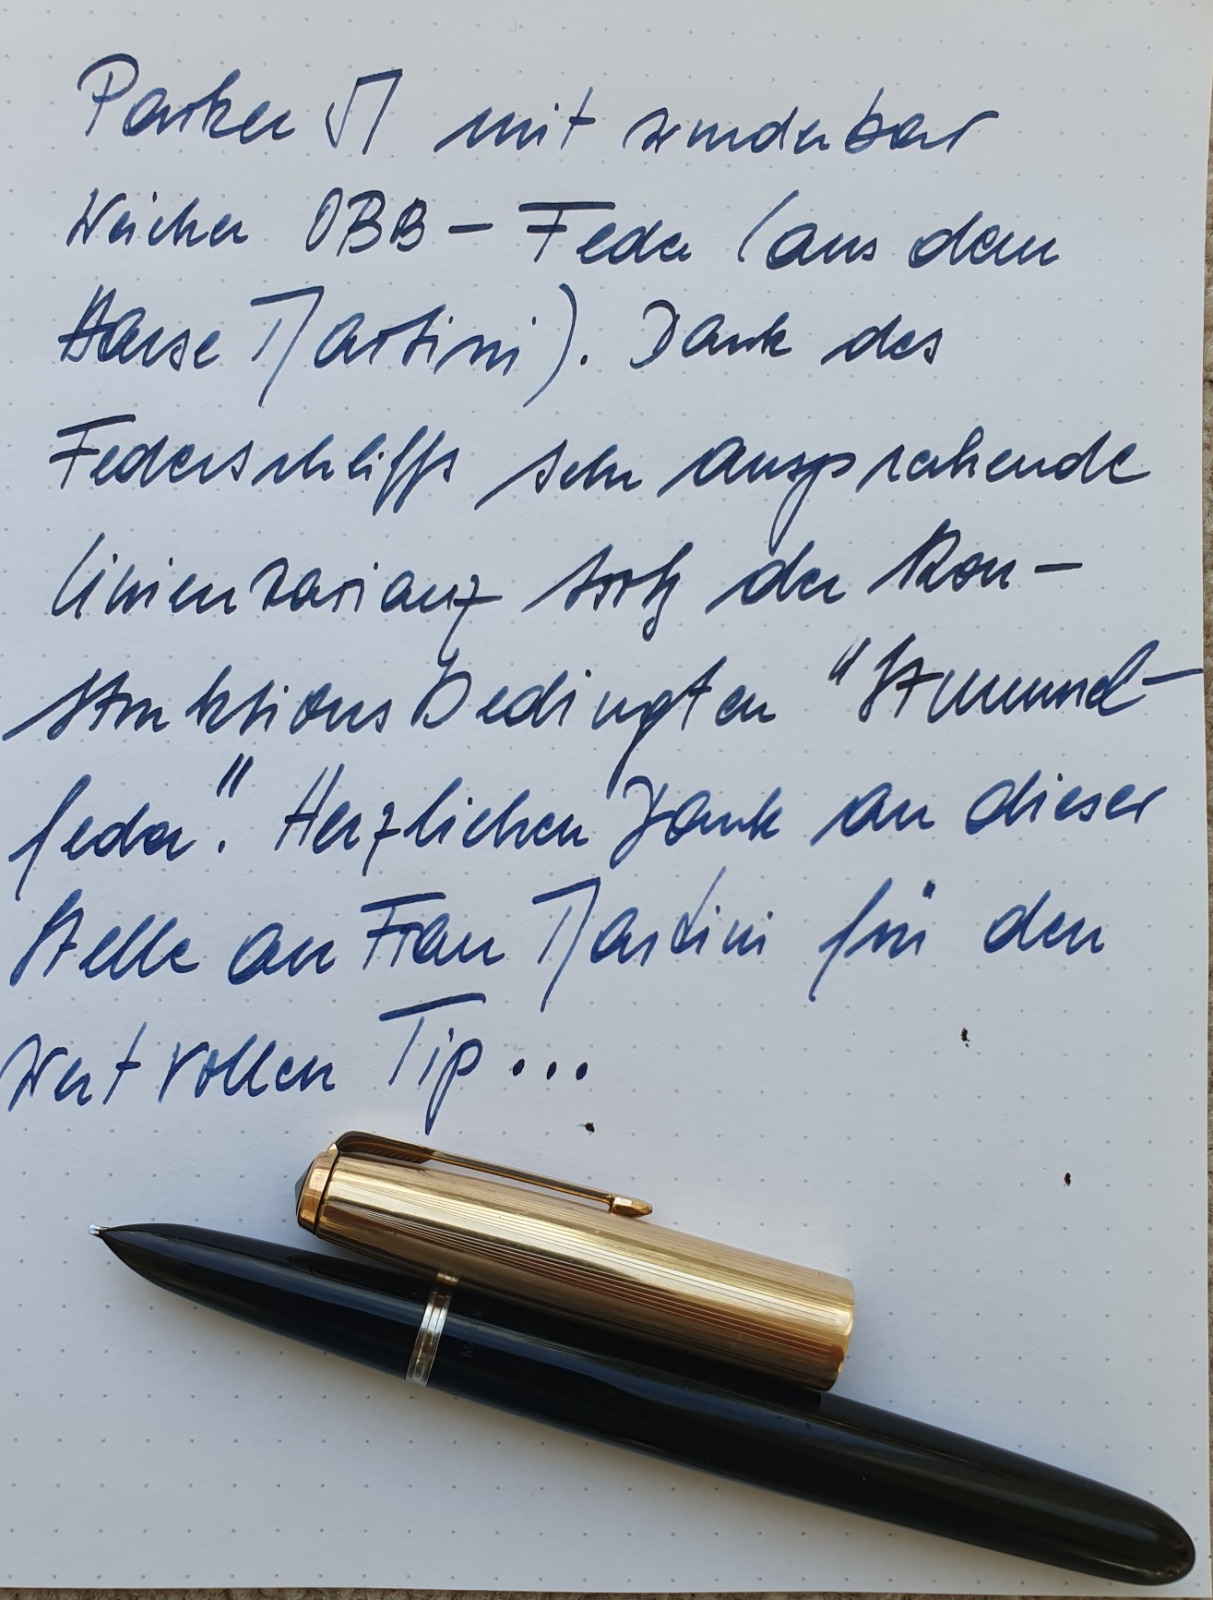 Parker 51 mit wunderbar
weicher OBB - Feder (aus dem
Hause Martini). Dank des
Federschliffs sehr ansprechende
Linienvarianz trotz der Kon-
struktionsbedingten "Stummel-
feder". Herzlichen Dank an dieser
Stelle an Frau Martini für den
wertvollen Tip...